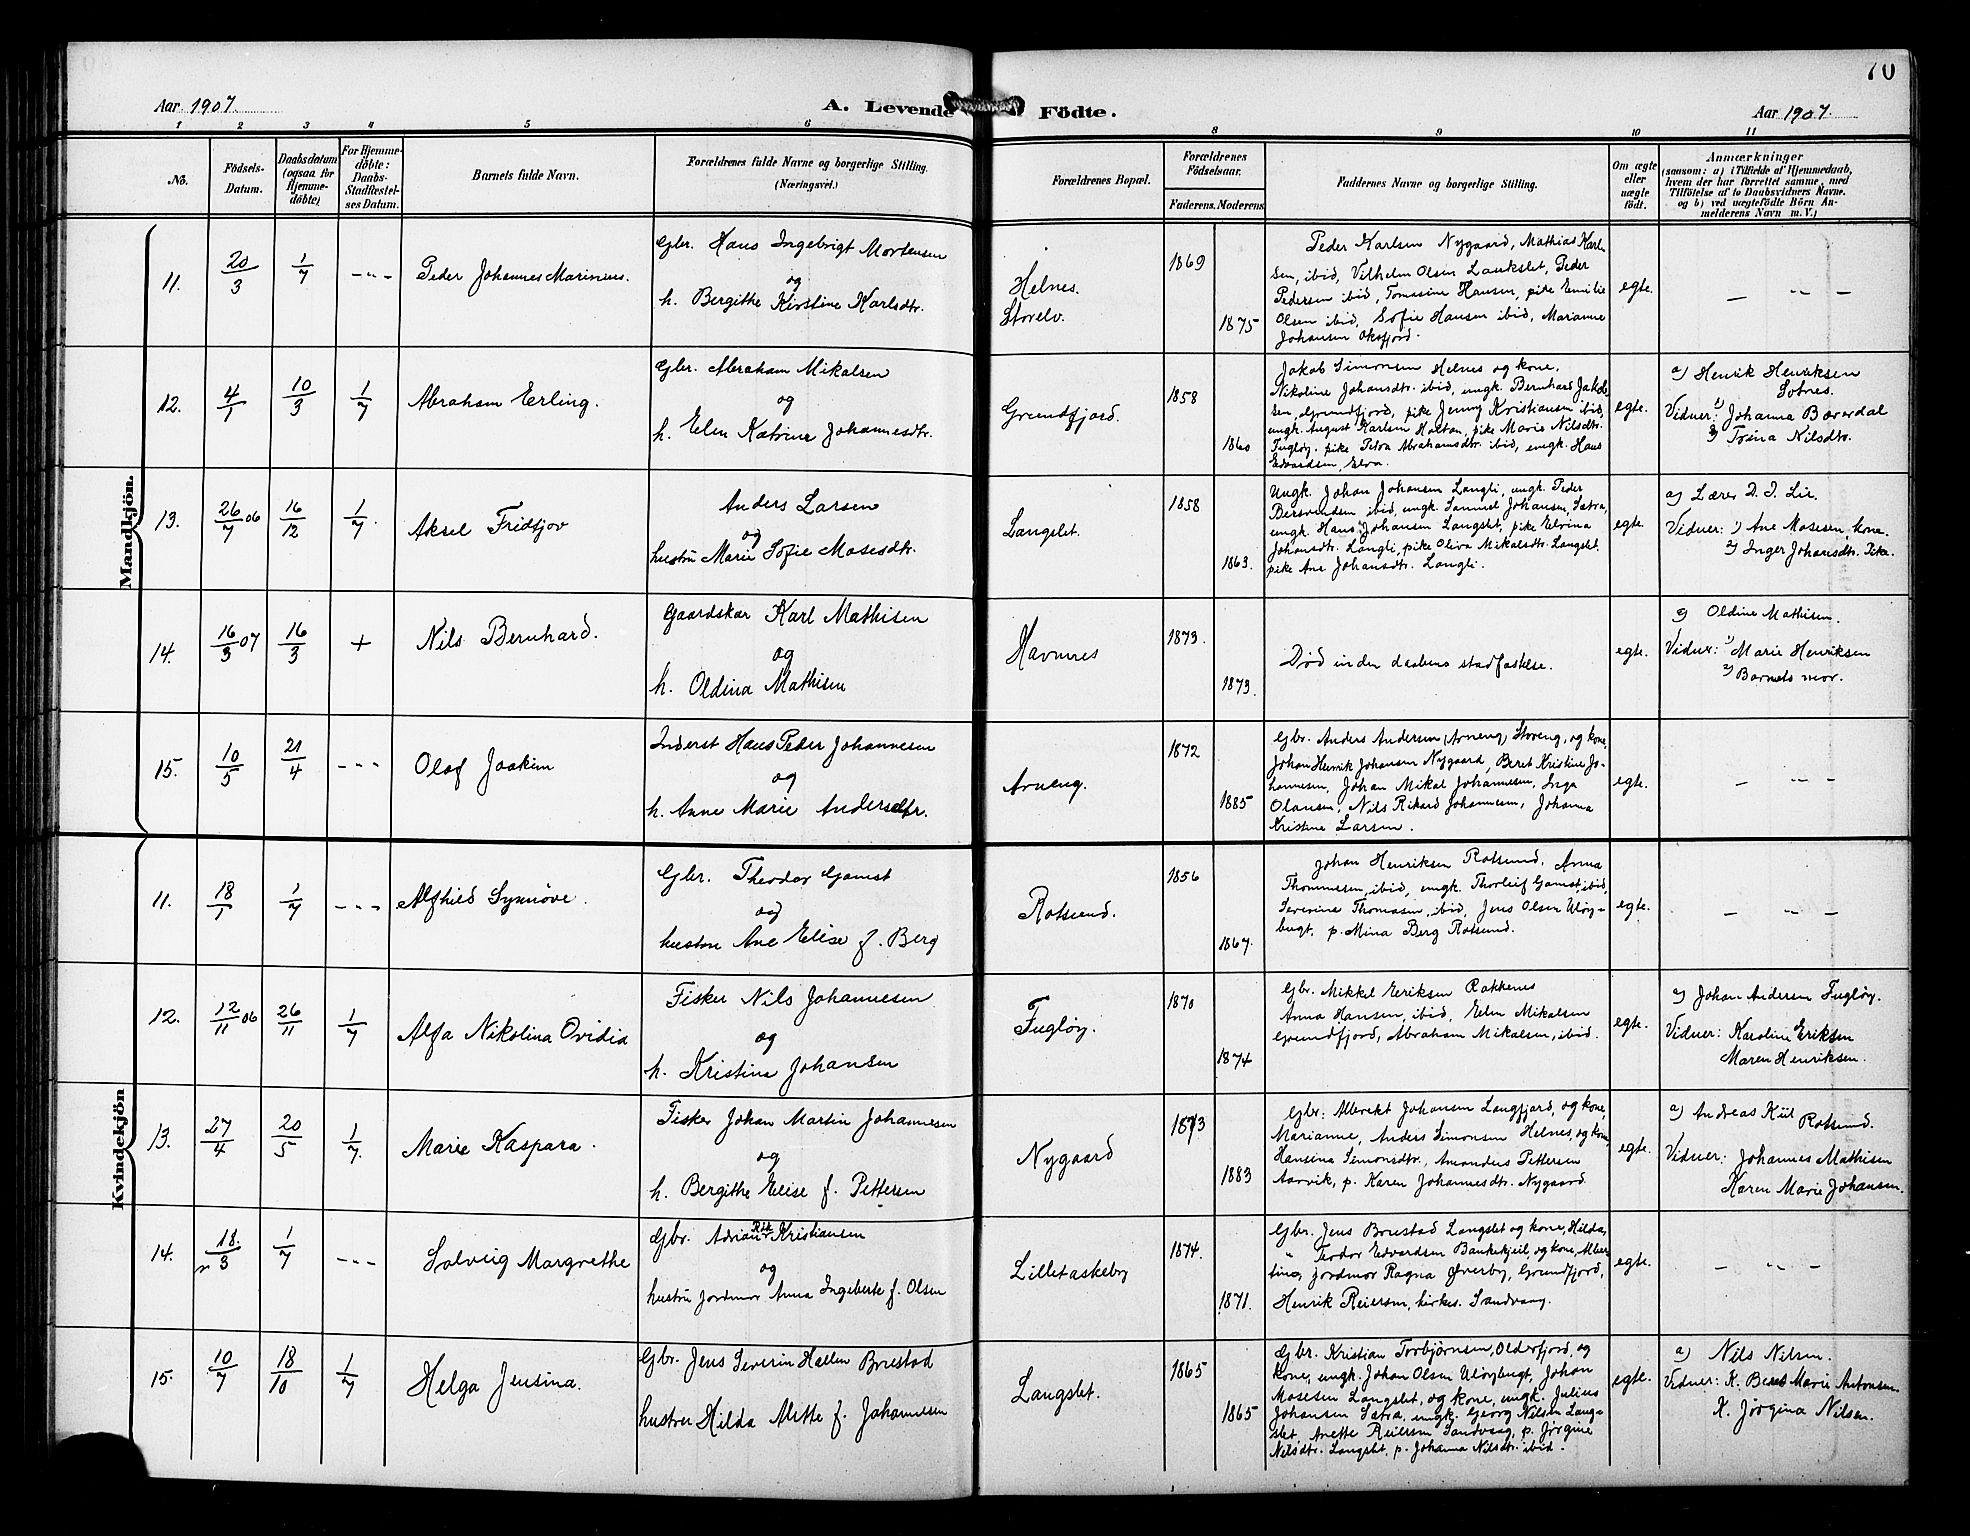 70
Aar 1907. A. Levende Födte. Aar 1907.
1 2 3 4 5 6 8 9 10 11
No.
Födsels-
Datum.
Daabsdatum
(ogsaa for
Hjemme-
döbte)
For Hjemme-
döbte:
Daabs-
Stadfæstel-
ses Datum.
Barnets fulde Navn.
Forældrenes fulde Navne og borgerlige Stilling.
(Næringsvei.)
Forældrenes Bopæl.
Forældrenes
Födselsaar.
Faderens. Moderens.
Faddernes Navne og borgerlige Stilling.
Om ægte
eller
uægte
födt.
Anmærkninger
(saasom: a) i Tilfælde af Hjemmedaab,
hvem der har forrettet samme, med
Tilföielse af to Daabsvidners Navne.
og b) ved uægtefödte Börn An-
melderens Navn m. V.)
Mandkjön.
11. 20/3 1/7 - - - Peder Johannes Marinius.
Gbr. Hans Ingebrigt Mortensen
og
h. Bergithe Kirstine Karlsdtr.
Helnes.
Storelv.
1869
1875
Peder Karlsen Nygaard, Mathias Karl-
sen, ibid, Vilhelm Olsen Lankslet, Peder
Pedersen ibid, Tomasine Hansen, pike Emilie
Olsen ibid, Sofie Hansen ibid, Marianne
Johansen Oksfjord.
egte.
— „ —
12. 4/1 10/3 1/7 Abraham Erling.
Gbr. Abraham Mikalsen
og
h. Elen Katrine Johannesdtr.
Grundfjord.
1858
1860
Jakob Simonsen Helnes og kone,
Nikoline Johansdtr. ibid, ungk. Bernhard Jakob-
sen, Grundfjord, pike Jenny Kristiansen ibid,
ungk. August Karlsen, pike Marie Nilsdtr.
Fugløy. pike Petra Abrahamsdtr. ibid, ungk. Hans
Edvardsen, Elva.
egte.
a) Henrik Henriksen
Sotnes.
Vidner: 1) Johanna Bæverdal
2) Trina Nilsdtr.
13. 26/7 06 16/12 1/7. Aksel Fridtjov
Anders Larsen
og
hustru Marie Sofie Mosesdtr.
Langslet.
1858
1863.
Ungk. Johan Johansen Langli, ungk. Peder
Bersvendsen ibid, ungk. Samuel Johansen, Sætra,
ungk. Hans Johansen Langslet, pike Elvina
Johansdtr. Langli, pike Oliva Mikalsdtr. Langslet.
pike Ane Johansdtr. Langli.
egte.
a) Lærer D. J. Lie.
Vidner: 1) Ane Mosesen, kone.
2) Inger Johansdtr. Pike.
14. 16/3 07 16/3 + Nils Bernhard.
Gaardskar Karl Mathisen
og
h. Oldina Mathisen
Havnnes
1873.
1873.
Død inden daabens stadfæstelse.
egte.
Oldine Mathisen.
Vidner: 1) Marie Henriksen
2) Barnets mor.
15. 10/5 21/4 - - - Olaf Joakim
Inderst Hans Peder Johannesen
og
h. Anne Marie Andersdtr.
Arneng.
1872
1885
Gbr. Anders Andersen (Arneng) Storeng, og kone,
Johan Henrik Johansen Nygaard, Beret Kristine Jo-
hannesen, Johan Mikal Johannesen, Inga
Olausen, Nils Rikard Johannesen, Johanna
Kristine Larsen.
egte.
— „ —
Kvindekjön
11. 18/1 1/7 - - - Alfhild Synnöve.
Gbr. Theodor Gamst
og
hustru Ane Elise f. Berg
Rotsund.
1856
1867.
Johan Henriksen Rotsund. Anna
Thommesen, ibid, ungk. Thorleif Gamst, ibid,
Severine Thomasen, ibid, Jens Olsen Uløy-
bugt, p. Mina Berg Rotsund.
egte.
— „ —
12. 12/11 06 26/11 1/7 Alfa Nikolina Ovidia
Fisker Nils Johannesen
og
h. Kristina Johansen
Fugløy.
1870
1874
Gbr. Mikkel Eriksen Rakkenes
Anna Hansen, ibid, Elen Mikalsen
Grundfjord, Abraham Mikalsen, ibid.
egte.
a) Johan Andersen Fugløy.
Vidner: Karoline Eriksen
Maren Henriksen.
13. 27/4 20/5 1/7. Marie Kaspara.
Fisker Johan Martin Johannesen
og
h. Bergithe Elise f. Pettersen
Nygaard
1873
1883
Gbr: Albrekt Johansen Langfjord, og kone,
Marianne, Anders Simonsen Helnes, og kone,
Hansina Simonsdtr., Amandus Pettersen
Aarvik, p. Karen Johannesdtr. Nygaard.
egte.
a) Andreas Kiil
Rotsund.
Vidner: Johannes Mathisen
Karen Marie Johansen.
14. 18./3 1/7 - - - Solveig Margrethe
Gbr. Adrian Kristiansen
og
hustru jordmor Anna Ingeberte f. Olsen
Lilletaskeby
1874.
1871.
Gbr. Jens Brustad Langslet og kone, Hilda,
„ Teodor Edvardsen Bankekjeil, og kone, Alber-
tina, jordmor Ragna Øverby, Grundfjord,
Henrik Reiersen, kirkes. Sandvaag.
egte.
— „ —
15. 10/7 18/10 1/7 Helga Jensina.
Gbr. Jens Severin Hallen Brustad
hustru Hilda Mette f. Johannesen
Langslet.
1865
1865
Gbr. Kristian Torbjørnsen, Olderfjord, og
kone, ungk. Johan Olsen Uløybugt, Johan
Mosesen Langslet, og kone, ungk. Julius
Johansen Sætra, ungk. Georg Nilsen Lang-
slet, Anette Reiersen Sandvaag, p. Jørgine
Nilsdtr. Langslet, p. Johanna Nilsdtr. ibid.
egte.
a) Nils Nilsen.
Vidner: K. Beret Marie Antonsen.
K. Jørgina Nilsen.